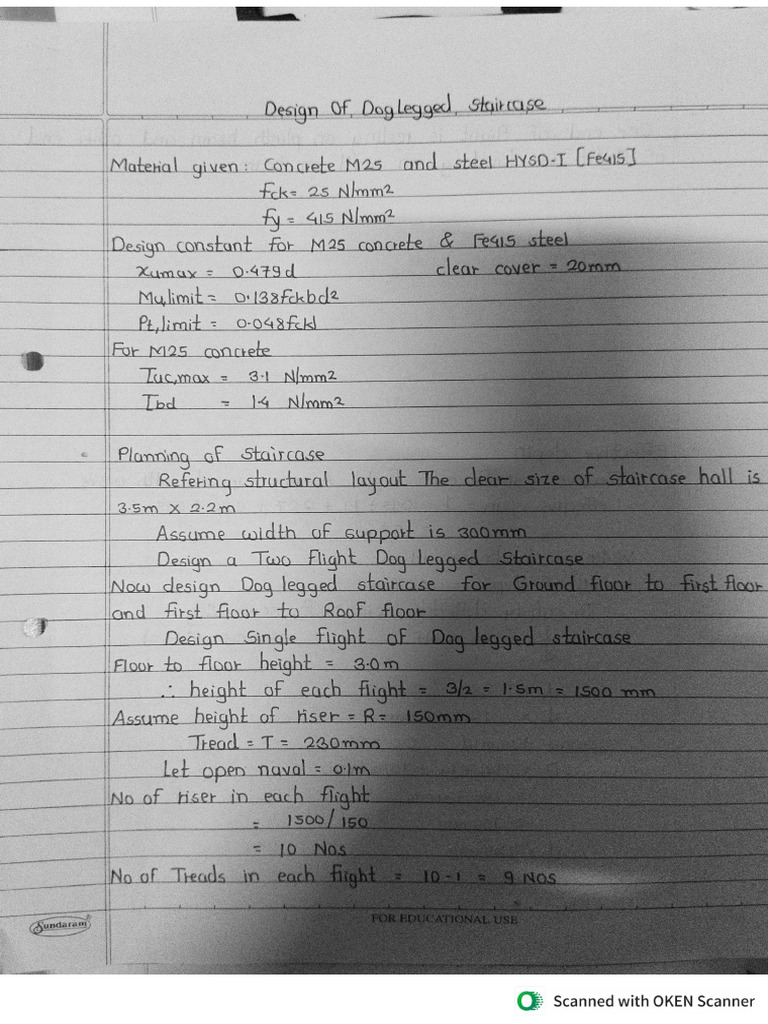 Design Of, Dog Legged, Staircase
Material given: Concrete M25 and steel HYSD-I [Fe415]
fck= 25 N/mm2
fy = 415 N/mm2
Design constant for M25 concrete & Fe415 steel
xumax = 0.479d clear cover = 20mm
Mu,limit = 0.138fckbd2
Pt,limit = 0.048fckl
For M25 concrete
Tuc,max = 3.1 N/mm2
Tbd = 1.4 N/mm2
Planning of Staircase
Refering structural layout The clear size of staircase hall is
3.5m x 2.2m
Assume width of support is 300mm
Design a Two Flight Dog Legged Staircase
Now design Dog legged staircase for Ground floor to first floor
and first floor to Roof floor
Design Single flight of Dog legged staircase
Floor to floor height = 3.0m
∴ height of each flight = 3/2 = 1.5m = 1500 mm
Assume height of riser = R= 150mm
Tread = T = 230mm
Let open naval = 0.1m
No of riser in each flight
= 1500/150
= 10 Nos
No of Treads in each flight = 10-1 = 9 Nos
Sundaram
FOR EDUCATIONAL USE
Scanned with OKEN Scanner